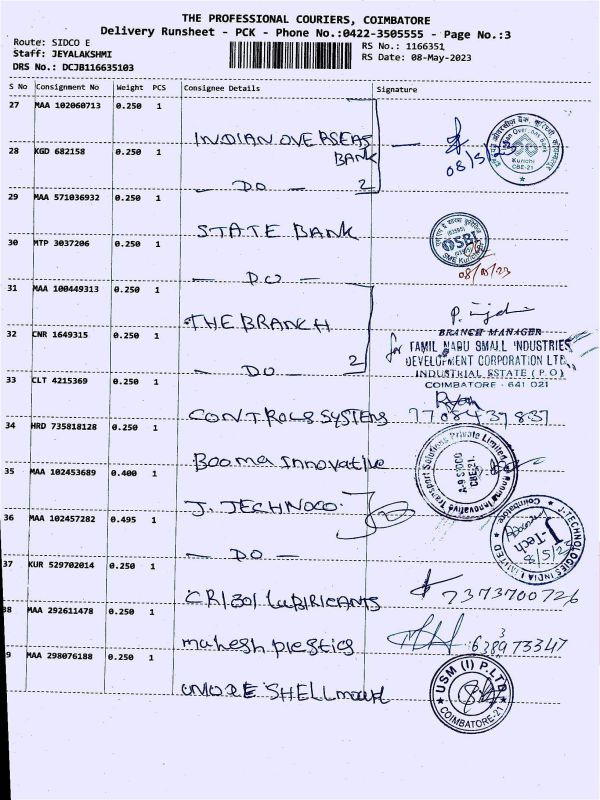 THE PROFESSIONAL COURIERS, COIMBATORE
Delivery Runsheet - PCK - Phone No.:0422-3505555 - Page No.:3
Route: SIDCO E
Staff: JEYALAKSHMI
DRS No.: DCJB116635103
RS No.: 1166351
RS Date: 08-May-2023
S No Consignment No Weight PCS Consignee Details Signature
27 MAA 102060713 0.250 1
INDIAN OVERSEAS BANK
08/5/23
Kurichi
CBE-21
28 KGD 682158 0.250 1
— DO — 2
29 MAA 571036932 0.250 1
STATE BANK
SBI
30 MTP 3037206 0.250 1
— DO —
31 MAA 100449313 0.250 1
THE BRANCH
BRANCH MANAGER
for TAMIL NADU SMALL INDUSTRIES
DEVELOPMENT CORPORATION LTD
INDUSTRIAL ESTATE (P.O)
COIMBATORE - 641 021
32 CNR 1649315 0.250 1
— DO — 2
33 CLT 4215369 0.250 1
CONTROLS SYSTEMS
34 HRD 735818128 0.250 1
Booma Innovative
Booma Innovative Transport Solutions Private Limited
CBE-21.
35 MAA 102453689 0.400 1
J. TECHNOCO.
36 MAA 102457282 0.495 1
— DO —
J-TECHNOLOGIES INDIA LIMITED
Coimbatore
J-Tech
8/5/23
37 KUR 529702014 0.250 1
LUBRICANTS
7373700726
38 MAA 292611478 0.250 1
mahesh plestics
9 MAA 298076188 0.250 1
SHELL
USM (I) P.LTD
COIMBATORE-21